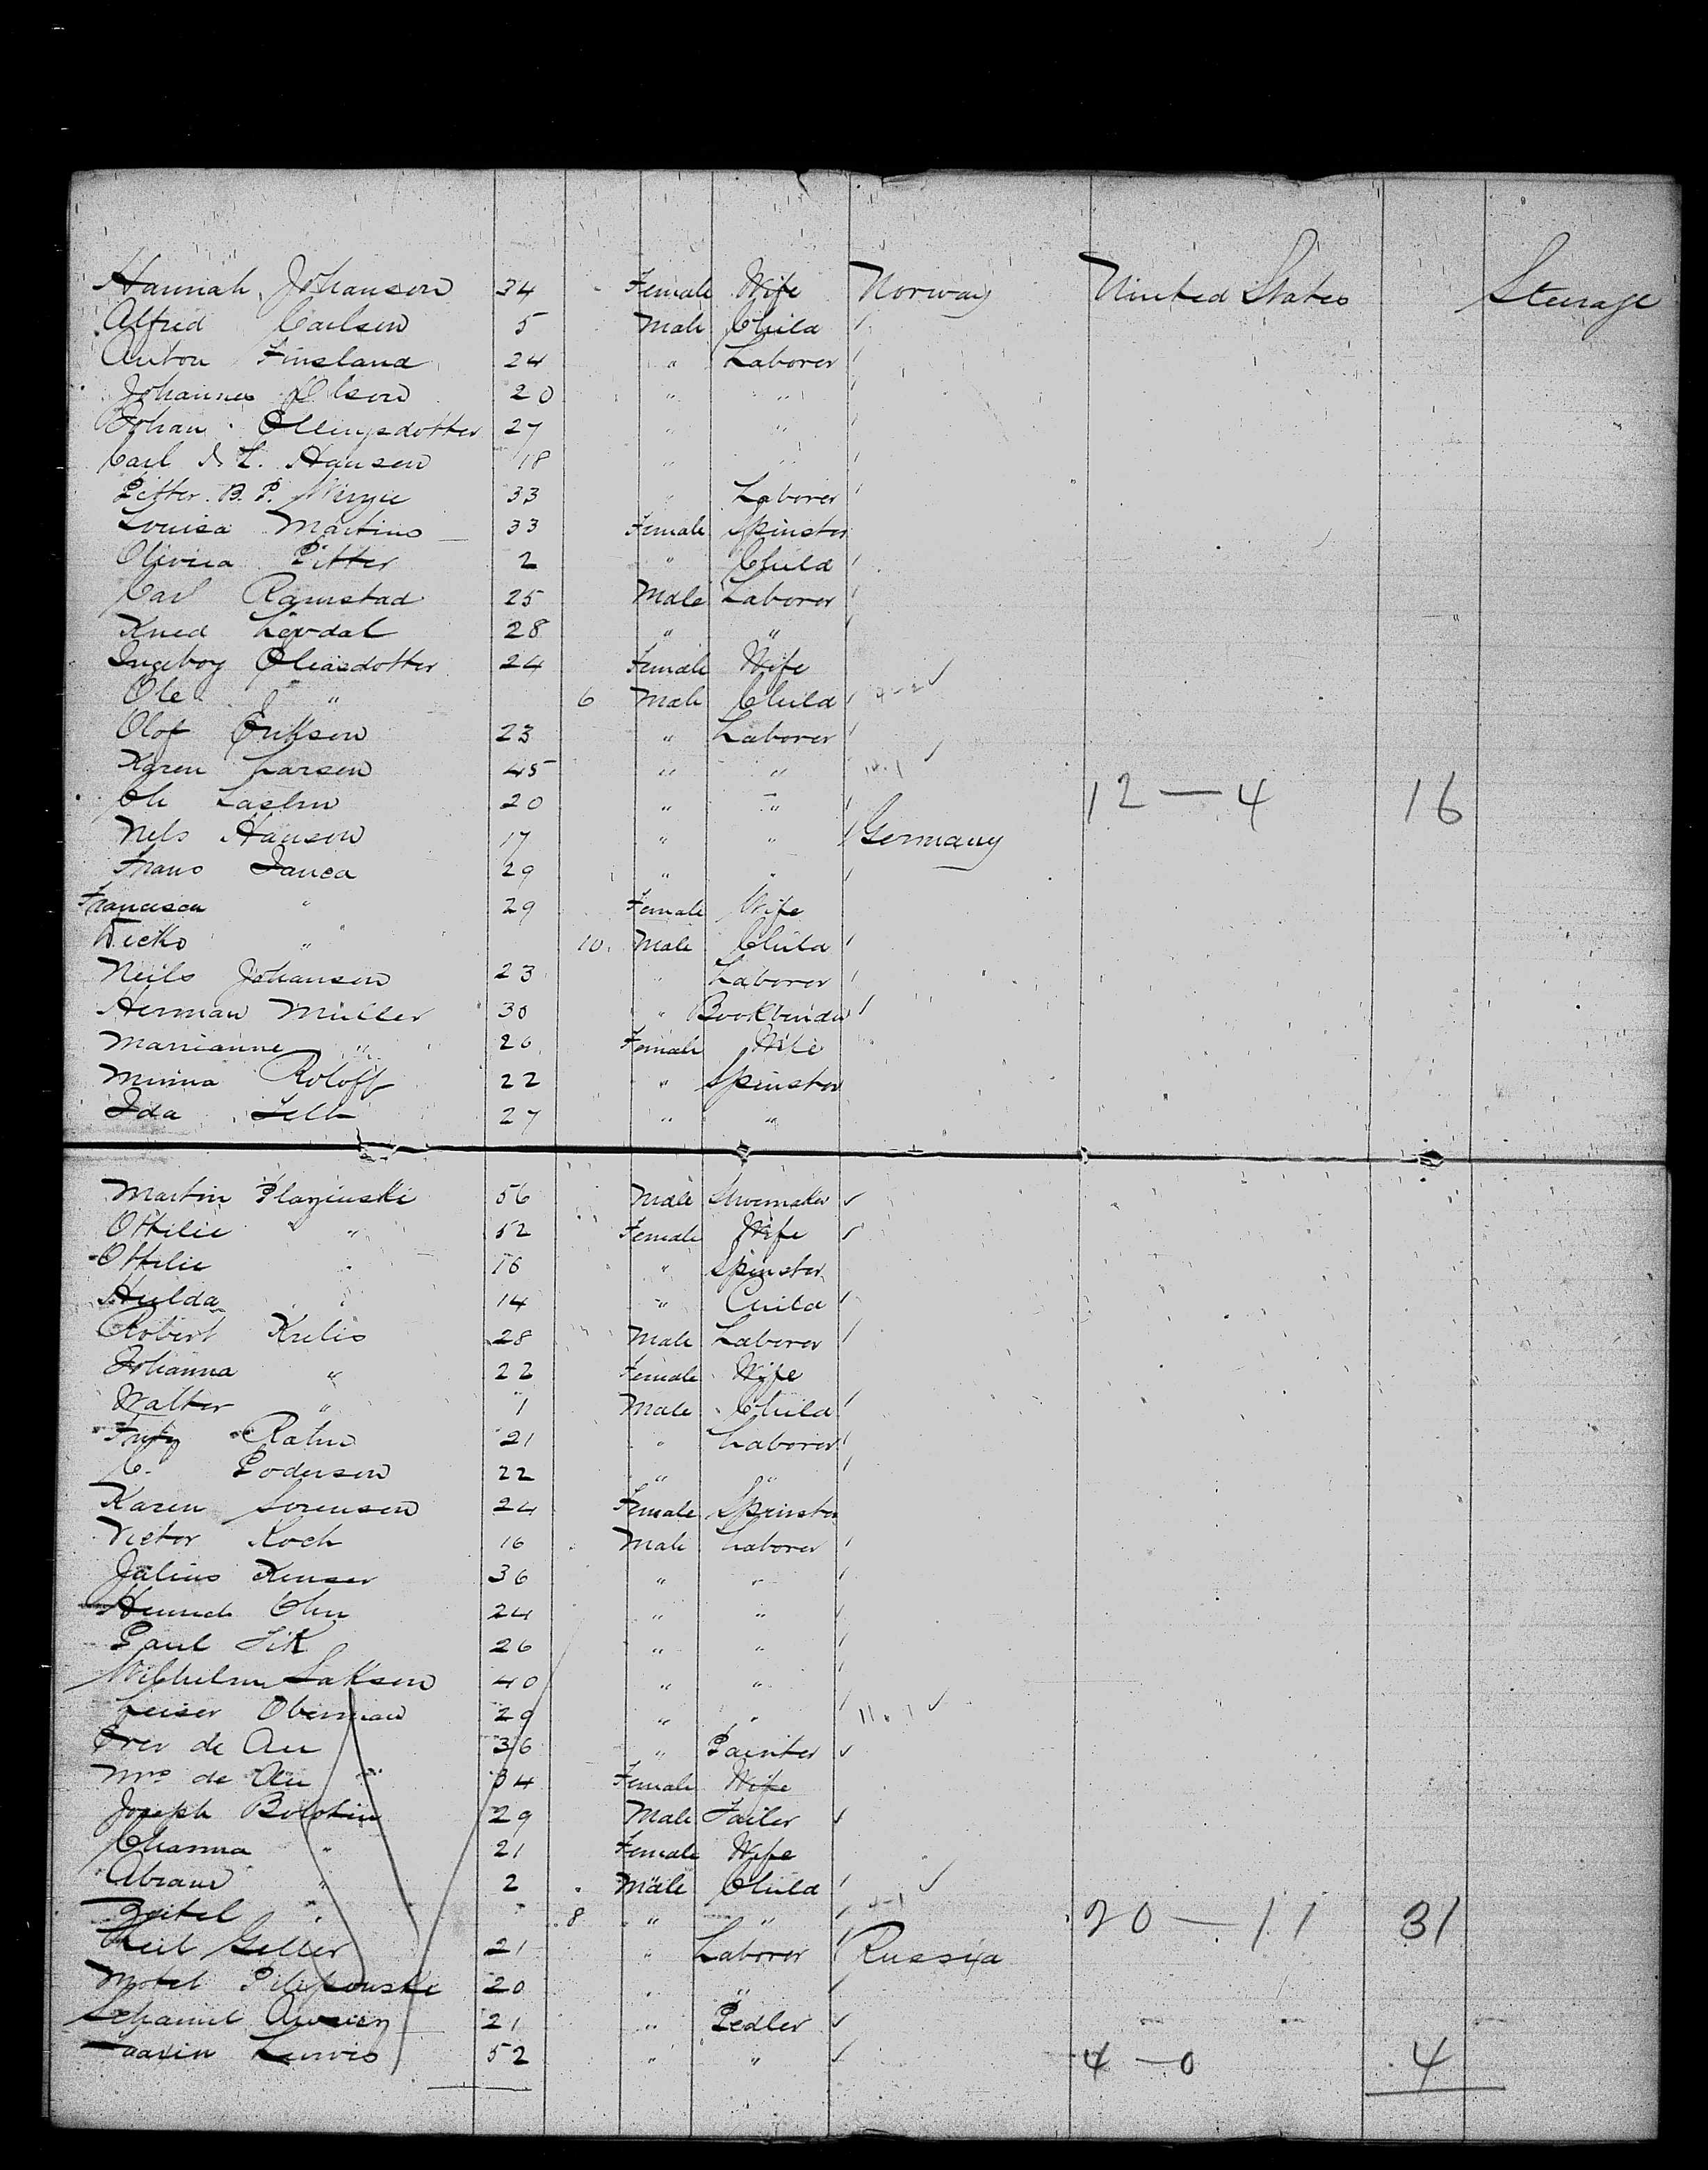 Hannah Johanson 34 Female Wife Norway United States Steerage
Alfred Carlson 5 Male Child
Anton Finsland 24 " Laborer
Johannes Olson 20 " "
Johan Ellingsdotter 27 " "
Carl & L. Hansen 18 " "
Petter B. P. 33 " Laborer
Louisa Martins 33 Female Spinster
Olivia Pitter 2 " Child
Carl Ramstad 25 Male Laborer
Kned Lovdal 28 " "
Ingeboy Oleasdotter 24 Female Wife
Ole " 6 Male Child
Olof Erikson 23 " Laborer
Karen Larsen 45 " "
Ole Laslin 20 " " 12 — 4 16
Nels Hanson 17 " " Germany
Frans Janca 29 " "
Francisca " 29 Female Wife
" 10 Male Child
Neils Johanson 23 " Laborer
Herman Müller 30 " Bookbinder
Marrianne " 26 Female Wife
Minna Roloff 22 " Spinster
Ida 27 " "
Martin Plazinski 56 Male Shoemaker
Ottilie " 52 Female Wife
Ottilie " 16 " Spinster
Hulda " 14 " Child
Robert Krelis 28 Male Laborer
Johanna " 22 Female Wife
Walter " 1 Male Child
Fritz Rahn 21 " Laborer
C. Poderson 22 " "
Karen Sorenson 24 Female Spinster
Victor Koch 16 Male Laborer
Julius Kenser 36 " "
24 " "
Paul Fik 26 " "
Wilhelm Lakson 40 " "
Leiser Oberman 29 " "
de Au 36 " Painter
Mrs de Au " 34 Female Wife
Joseph Bolotin 29 Male Tailer
Channa " 21 Female Wife
Abram " 2 Male Child
Zeitel " 8 " " 20 — 11 31
Geller 21 " Laborer Russia
Motel Pilipowski 20 " "
21 " Pedler
52 " " 4 — 0 4